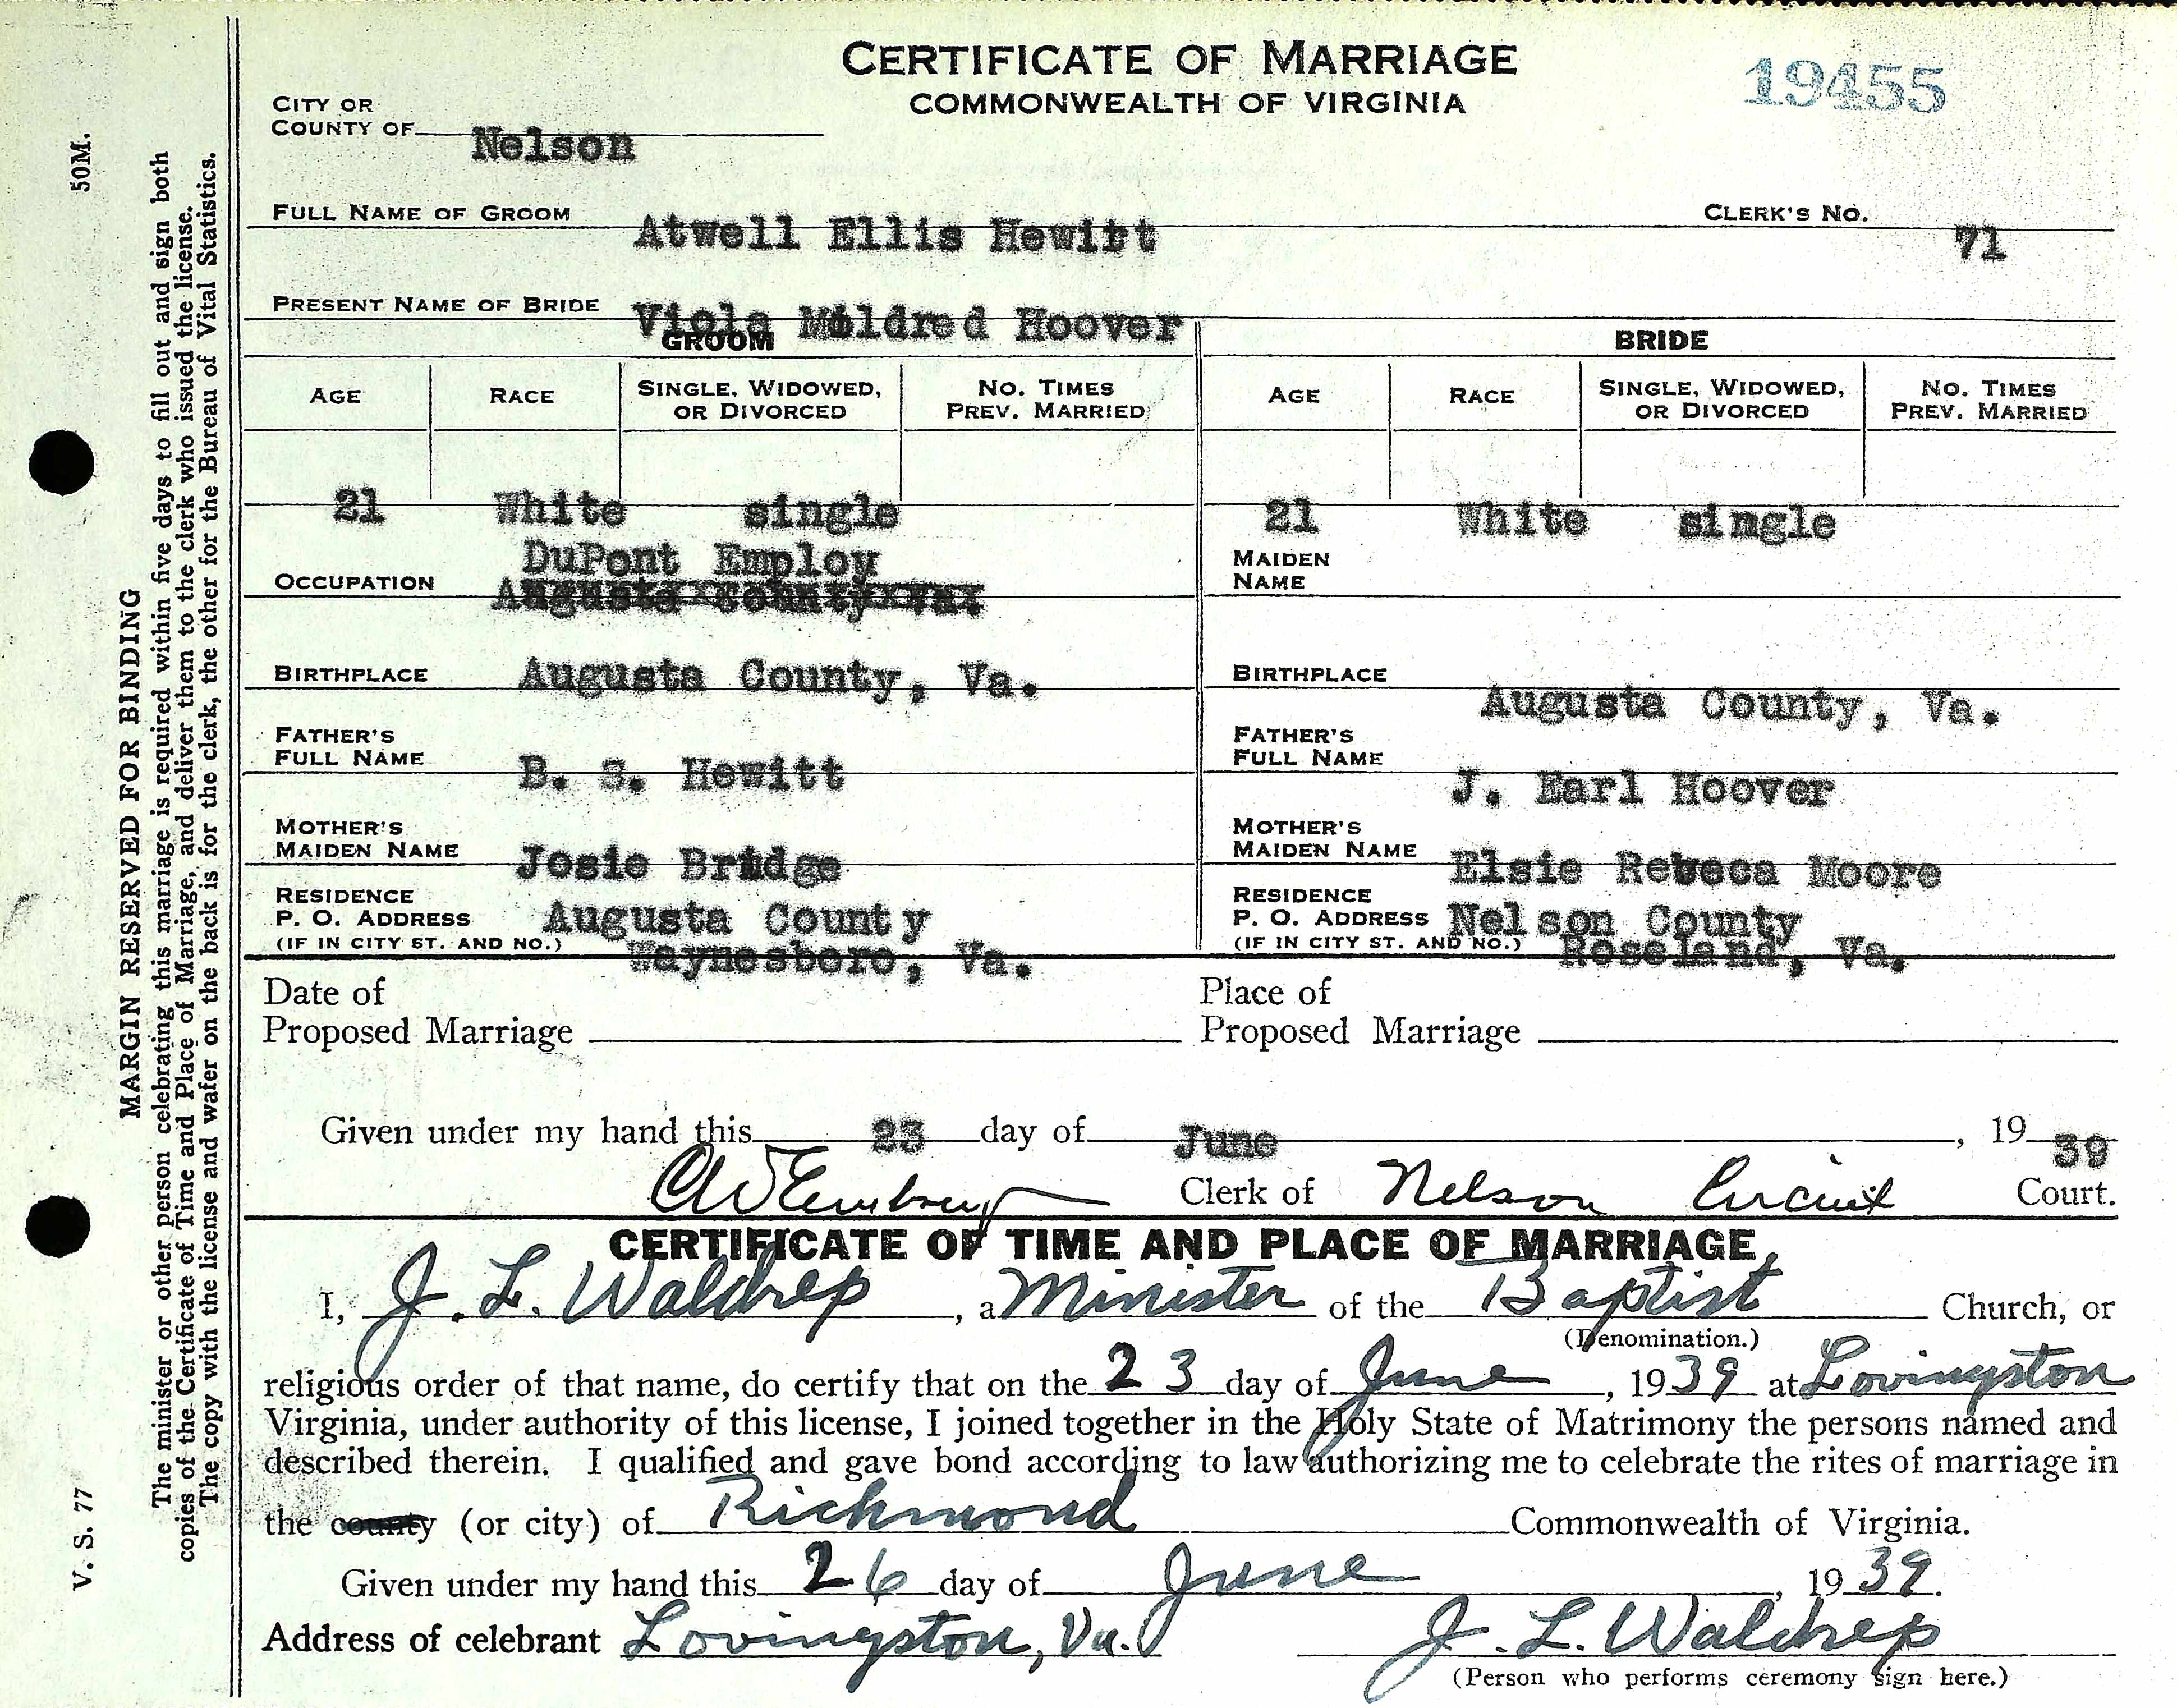 CERTIFICATE OF MARRIAGE
COMMONWEALTH OF VIRGINIA
19455
CITY OR
COUNTY OF Nelson
FULL NAME OF GROOM Atwell Ellis Hewitt CLERK'S NO. 71
PRESENT NAME OF BRIDE Viola Mildred Hoover
GROOM BRIDE
AGE RACE SINGLE, WIDOWED, OR DIVORCED NO. TIMES PREV. MARRIED AGE RACE SINGLE, WIDOWED, OR DIVORCED NO. TIMES PREV. MARRIED
21 White single 21 White single
OCCUPATION DuPont Employ
Augusta County Va.
MAIDEN NAME
BIRTHPLACE Augusta County, Va. BIRTHPLACE Augusta County, Va.
FATHER'S FULL NAME B. S. Hewitt FATHER'S FULL NAME J. Earl Hoover
MOTHER'S MAIDEN NAME Josie Bridge MOTHER'S MAIDEN NAME Elsie Rebeca Moore
RESIDENCE RESIDENCE
P. O. ADDRESS Augusta County P. O. ADDRESS Nelson County
(IF IN CITY ST. AND NO.) Waynesboro, Va. (IF IN CITY ST. AND NO.) Roseland, Va.
Date of Place of
Proposed Marriage Proposed Marriage
Given under my hand this 23 day of June, 1939
Clerk of Nelson Circuit Court.
CERTIFICATE OF TIME AND PLACE OF MARRIAGE.
I, J. L. Waldrep, a Minister of the Baptist Church, or
(Denomination.)
religious order of that name, do certify that on the 23 day of June, 1939 at Lovingston
Virginia, under authority of this license, I joined together in the Holy State of Matrimony the persons named and
described therein. I qualified and gave bond according to law authorizing me to celebrate the rites of marriage in
the county (or city) of Richmond Commonwealth of Virginia.
Given under my hand this 26 day of June, 1939.
Address of celebrant Lovingston, Va. J. L. Waldrep
(Person who performs ceremony sign here.)
50M.
MARGIN RESERVED FOR BINDING
The minister or other person celebrating this marriage is required within five days to fill out and sign both
copies of the Certificate of Time and Place of Marriage, and deliver them to the clerk who issued the license.
The copy with the license and wafer on the back is for the clerk, the other for the Bureau of Vital Statistics.
V. S. 77